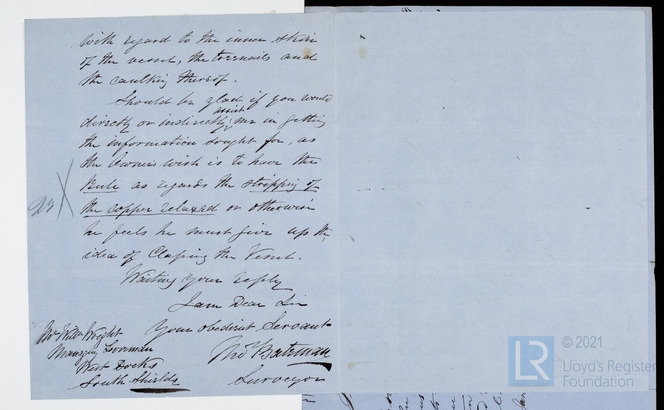 with regard to the inner skin
of the vessel, the treenails and
the caulking thereof.
Should be glad if you would
directly or indirectly assist me in getting
the information sought for, as
the Owners wish is to have the
Rule as regards the stripping of
the copper relaxed or otherwise
he feels he must give up the
idea of Classing the Vessel.
Waiting your reply
I am Dear Sir
Your obedient Servant
Thos Bateman
Surveyor
Mr Willm Wright
Managing Foreman
West Docks
South Shields
© 2021
LR
Lloyd's Register
Foundation